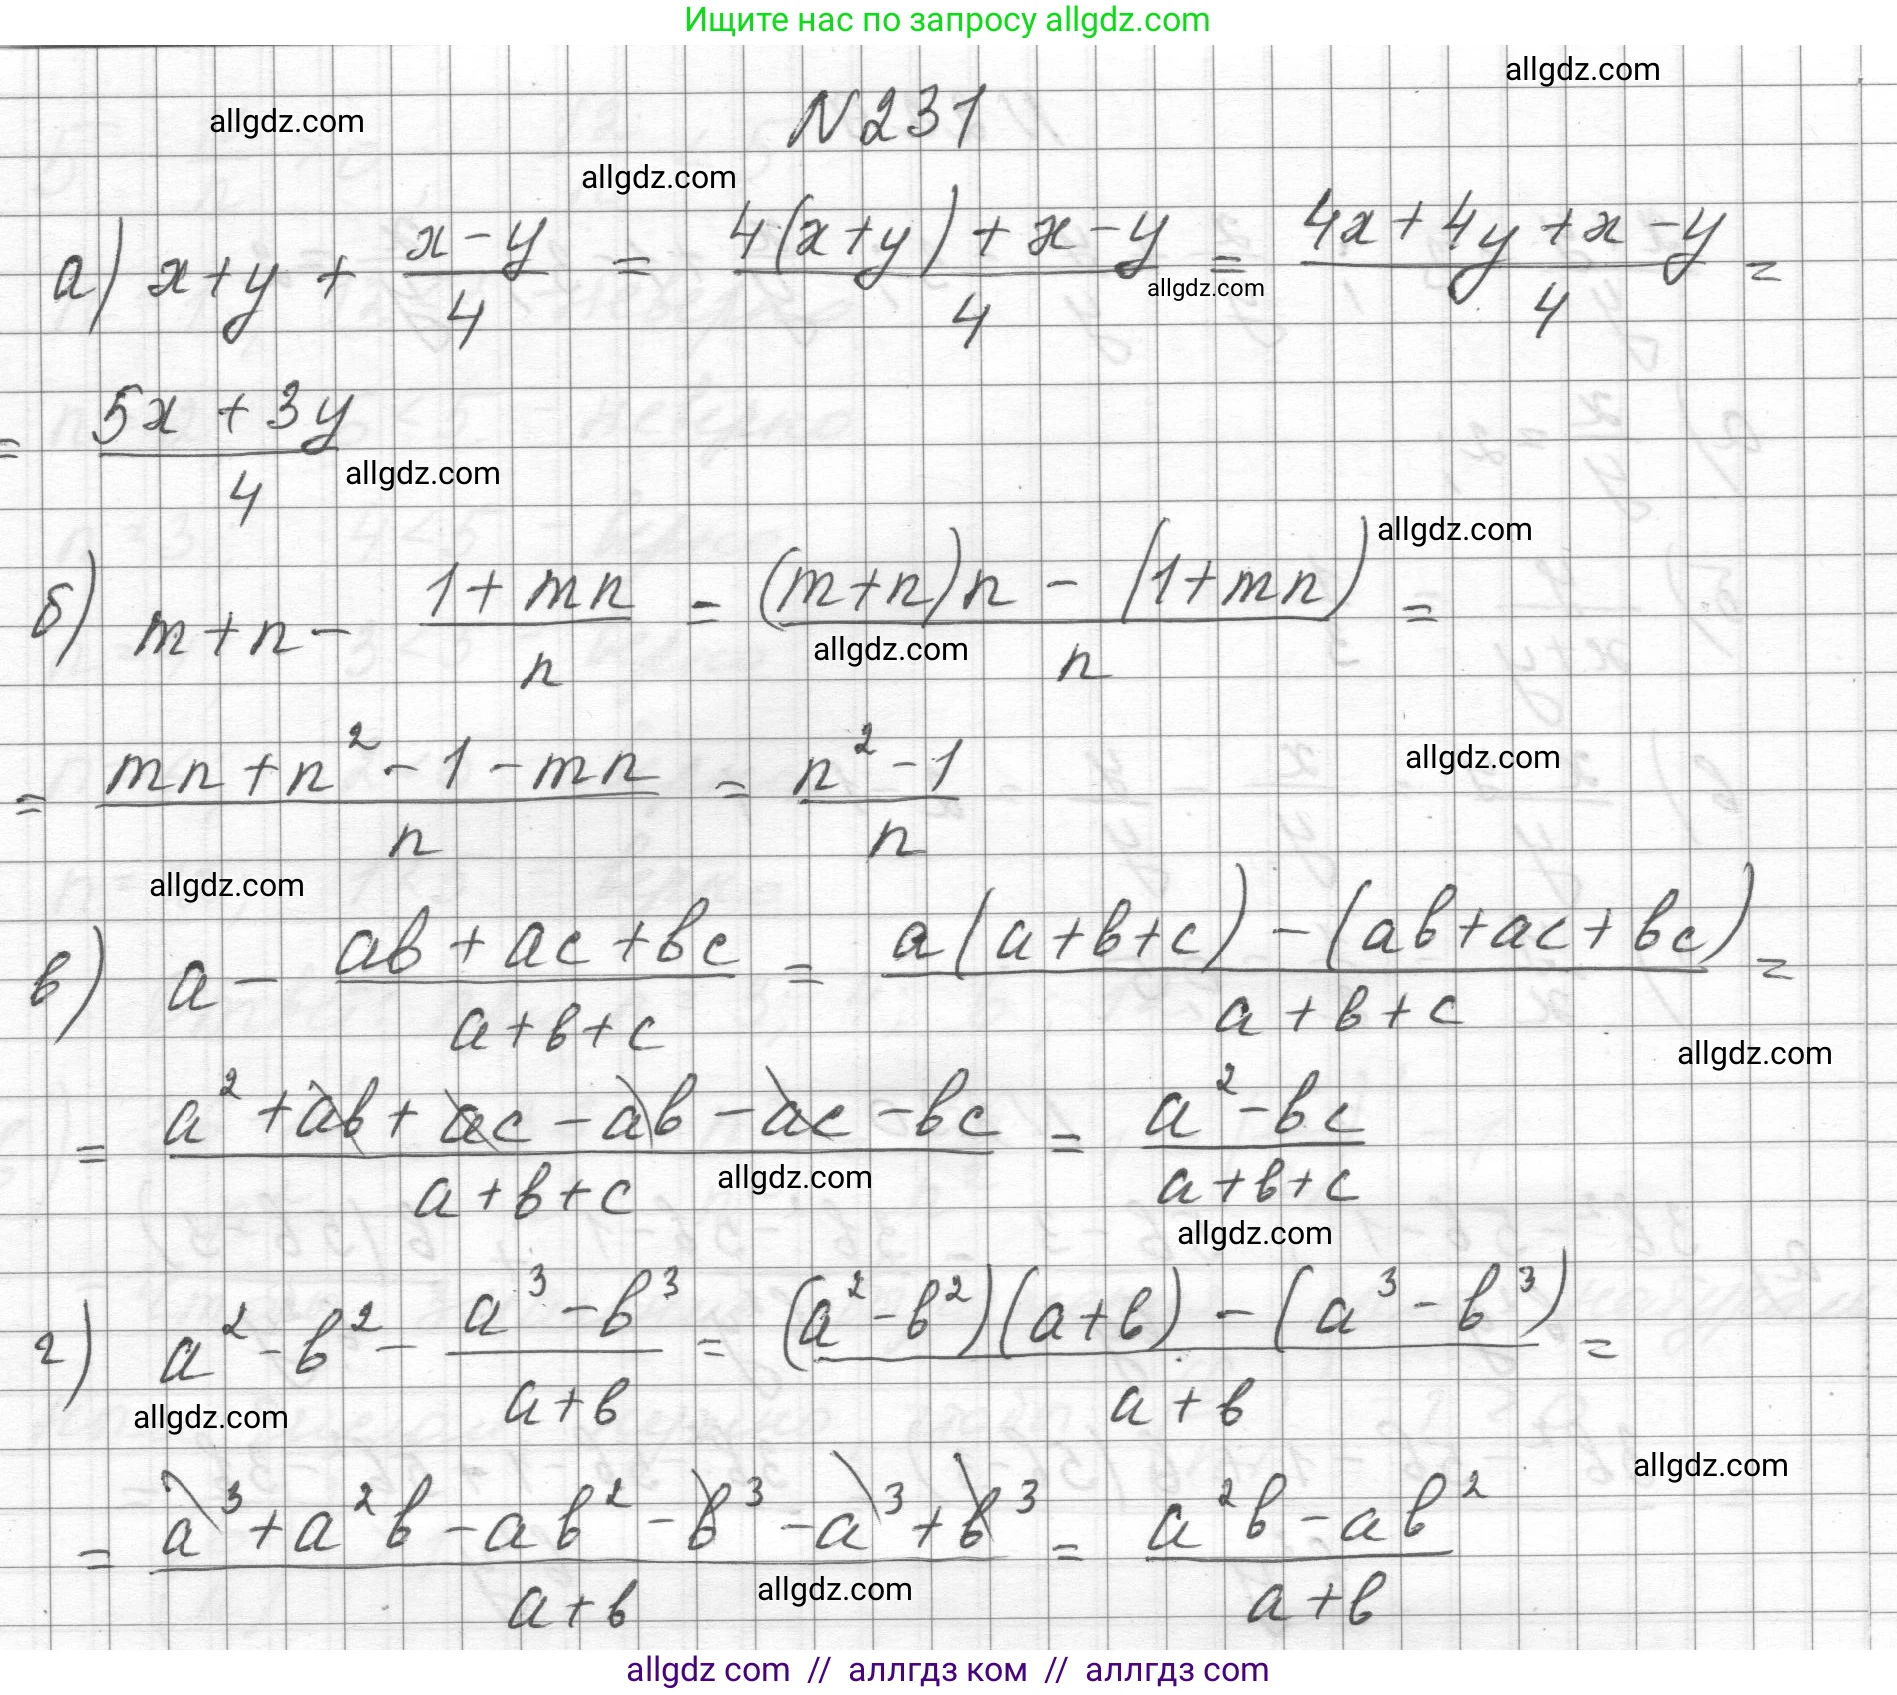 Ищите нас по запросу allgdz.com
allgdz.com
allgdz.com
N231
allgdz.com
а) x+y + (x-y)/4 = (4(x+y)+x-y)/4 = (4x+4y+x-y)/4 =
allgdz.com
= (5x+3y)/4
allgdz.com
allgdz.com
б) m+n - (1+mn)/n = ((m+n)n - (1+mn))/n =
allgdz.com
= (mn+n²-1-mn)/n = (n²-1)/n
allgdz.com
allgdz.com
в) a - (ab+ac+bc)/(a+b+c) = (a(a+b+c) - (ab+ac+bc))/(a+b+c) =
allgdz.com
= (a²+ab+ac-ab-ac-bc)/(a+b+c) = (a²-bc)/(a+b+c)
allgdz.com
allgdz.com
г) a²-b² - (a³-b³)/(a+b) = ((a²-b²)(a+b) - (a³-b³))/(a+b) =
allgdz.com
allgdz.com
= (a³+a²b-ab²-b³-a³+b³)/(a+b) = (a²b-ab²)/(a+b)
allgdz.com
allgdz com // аллгдз ком // аллгдз com